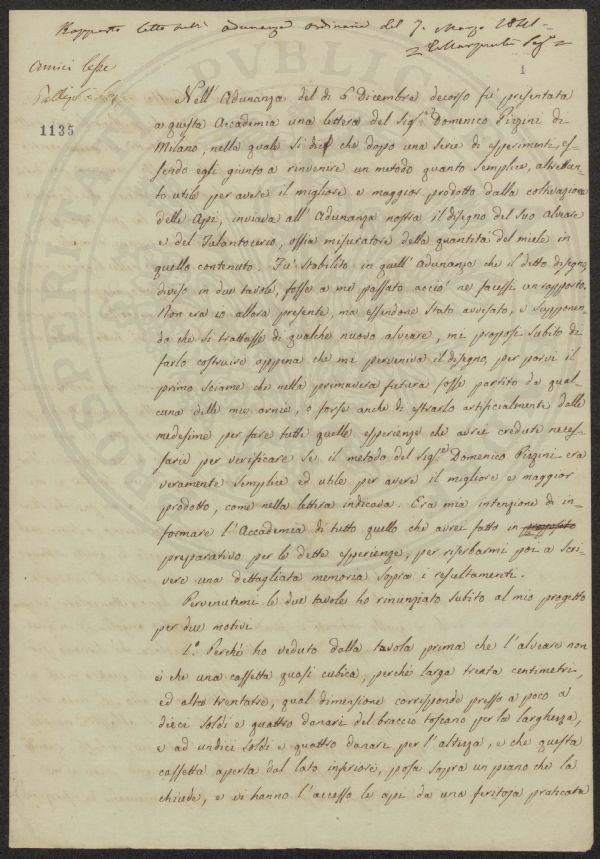 Rapporto letto nell' adunanza ordinaria del 7. Marzo 1841.
Amici Cesre
1
1135
Nell' Adunanza del dì 6 Dicembre decorso fu presentata
a questa Accademia una lettera del Sigre Domenico Pizzini di
Milano, nella quale si dice che dopo una serie di esperimenti, es-
sendo egli giunto a rinvenire un metodo quanto semplice, altrettan-
to utile per avere il migliore e maggior prodotto dalla coltivazione
delle Api, inviava all' Adunanza nostra il disegno del suo alveare
e del Talantocerio, ossia misuratore della quantità del miele in
quello contenuto. Fu stabilito in quell' Adunanza che il detto disegno,
diviso in due tavole, fosse a me passato acciò ne facessi un rapporto.
Non era io allora presente, ma essendone stato avvisato, e supponen-
do che si trattasse di qualche nuovo alveare, mi proposi subito di
farlo costruire appena che mi perveniva il disegno, per porvi il
primo sciame che nella primavera futura fosse partito da qual-
cuna delle mie arnie, o forse anche di estrarlo artificialmente dalle
medesime per fare tutte quelle esperienze che avrei credute neces-
sarie per verificare se il metodo del Sigre Domenico Pizzini era
veramente semplice ed utile per avere il migliore e maggior
prodotto, come nella lettera indicava. Era mia intenzione di in-
formare l'Accademia di tutto quello che avrei fatto in proposito
preparativo per le dette esperienze, per riserbarmi poi a scri-
vere una dettagliata memoria sopra i resultamenti.
Pervenutemi le due tavole ho rinunziato subito al mio progetto
per due motivi
1.° Perché ho veduto dalla tavola prima che l'alveare non
è che una cassetta quasi cubica, perché larga trenta centimetri,
ed alta trentatre, qual dimensione corrisponde presso a poco a
dieci soldi e quattro danari del braccio toscano per la larghezza,
e ad undici soldi e quattro danari per l'altezza, e che questa
cassetta aperta dal lato inferiore, posa sopra un piano che la
chiude, e vi hanno l'accesso le api da una feritoja praticata